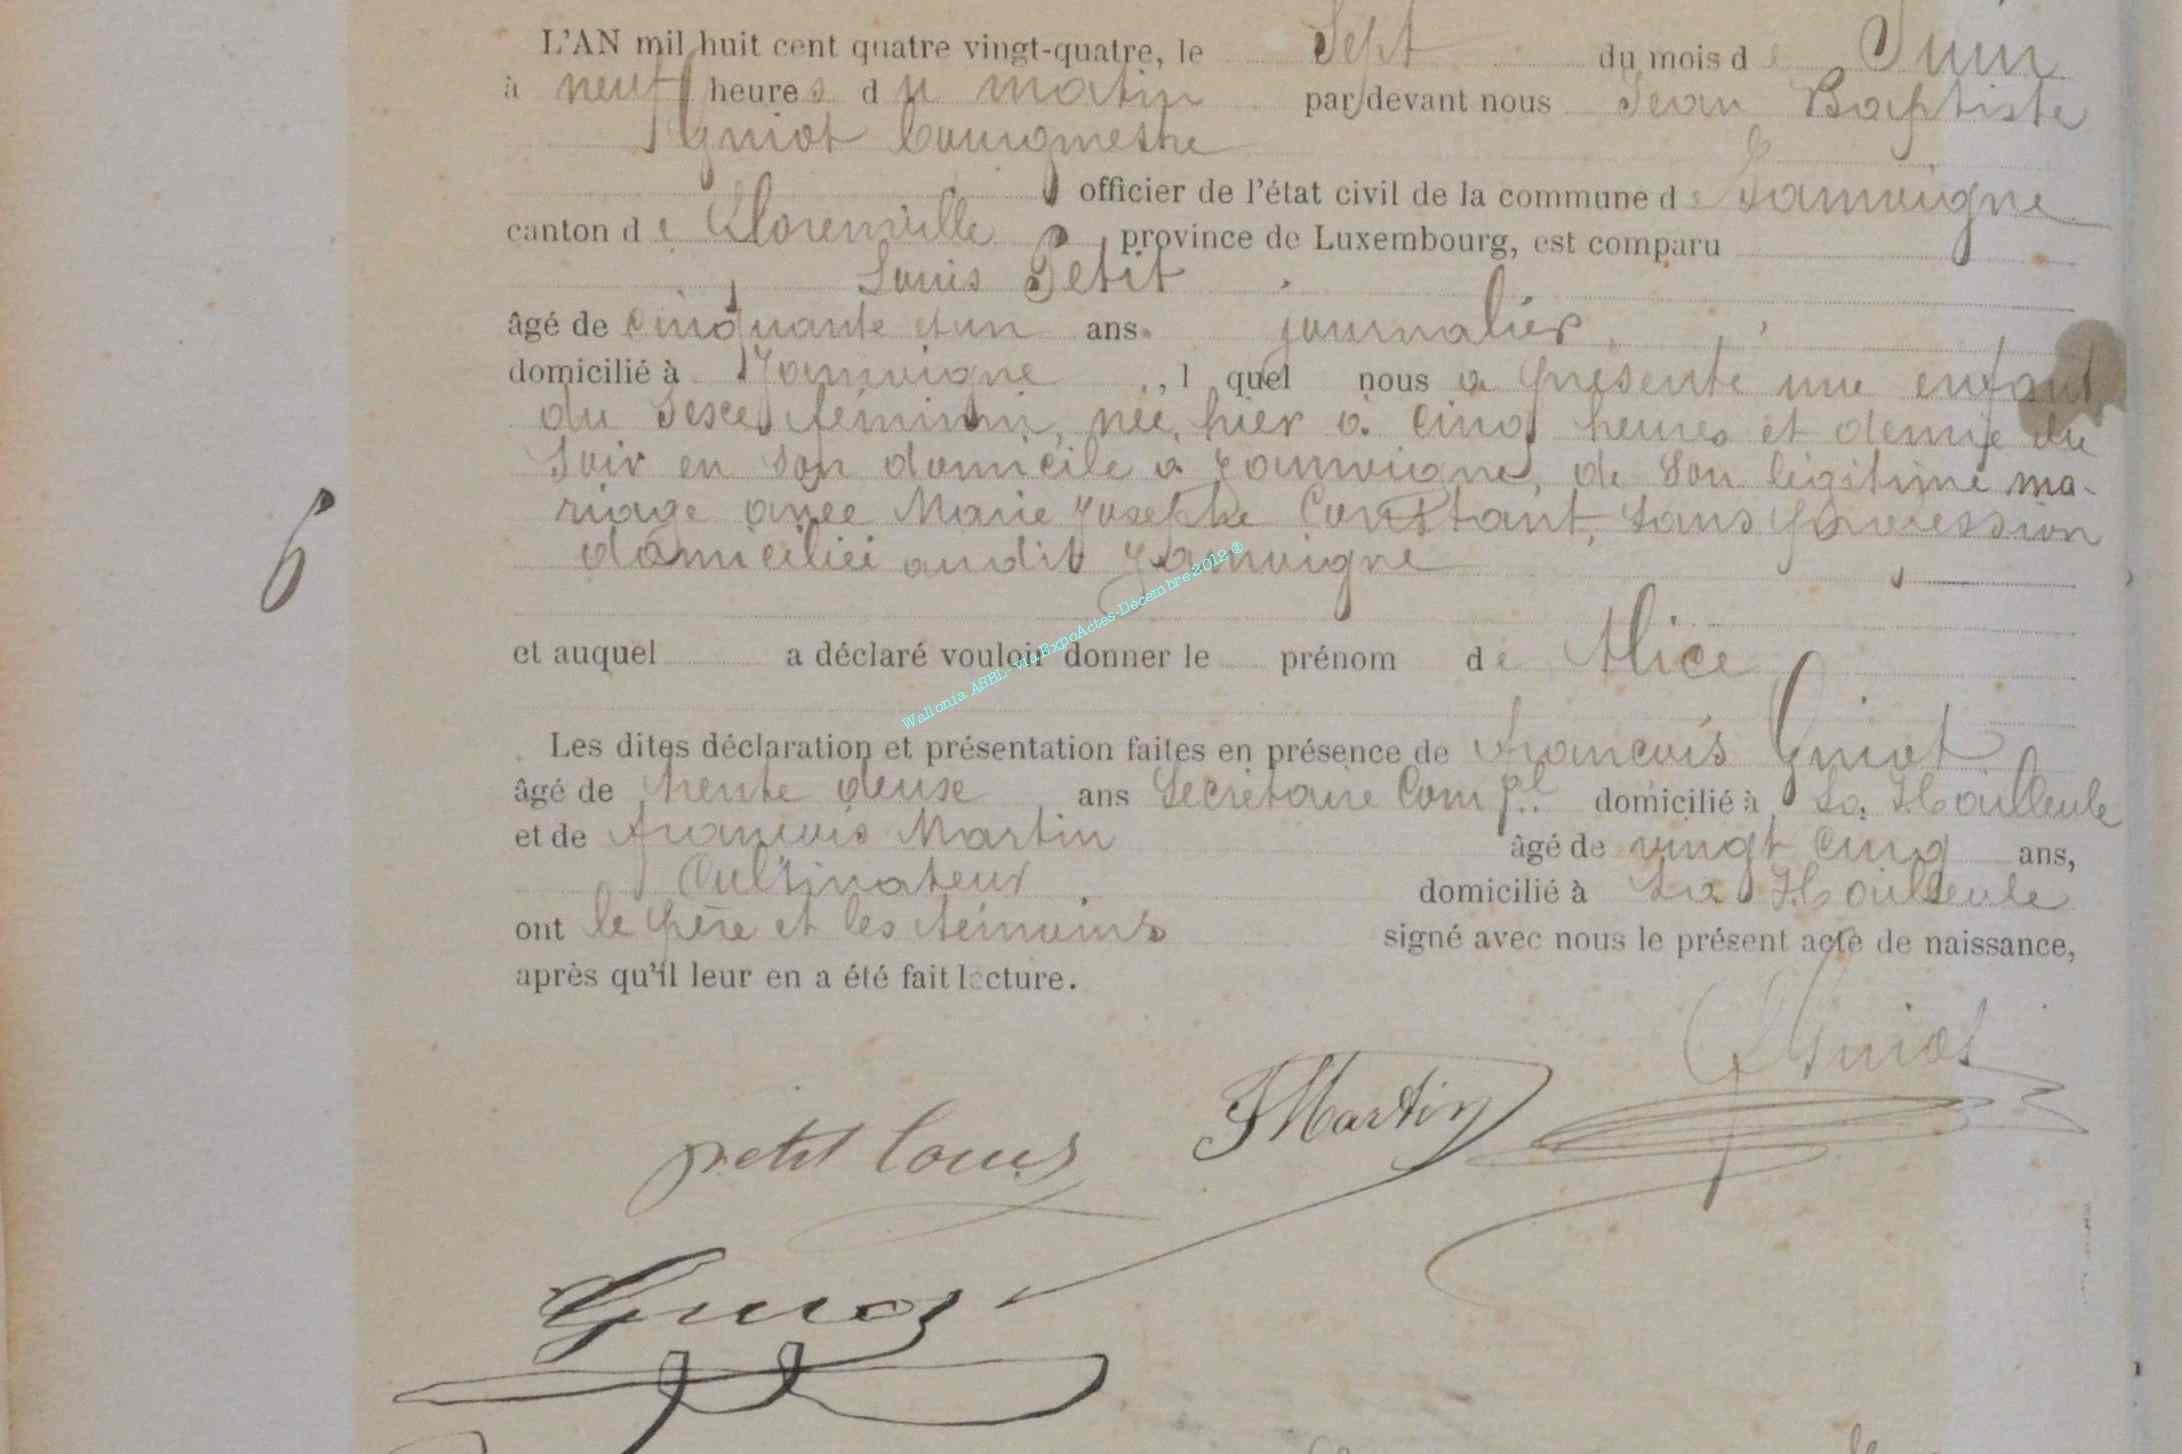 L'AN mil huit cent quatre vingt-quatre, le Sept du mois de Juin
à neuf heures du matin par devant nous Jean Baptiste
Guiot bourgmestre
officier de l'état civil de la commune de Jamoigne
canton de Florenville province de Luxembourg, est comparu
Louis Petit
âgé de cinquante et un ans journalier,
domicilié à Jamoigne, l quel nous a présenté une enfant
du sexe féminin, née, hier à cinq heures et demie du
soir en son domicile à Jamoigne, de son légitime ma-
riage avec Marie Josephe Constant, sans profession
domiciliée audit Jamoigne
6
et auquel a déclaré vouloir donner le prénom de Alice
Les dites déclaration et présentation faites en présence de François Guiot
âgé de trente deux ans Secrétaire Com.l domicilié à La Hailleule
et de François Martin âgé de vingt cinq ans,
Cultivateur domicilié à La Hailleule
ont le père et les témoins signé avec nous le présent acte de naissance,
après qu'il leur en a été fait lecture.
Guiot
petit louis FMartin
Guiot
Wallonia ASBL via ExpoActes-Décembre 2012 ®